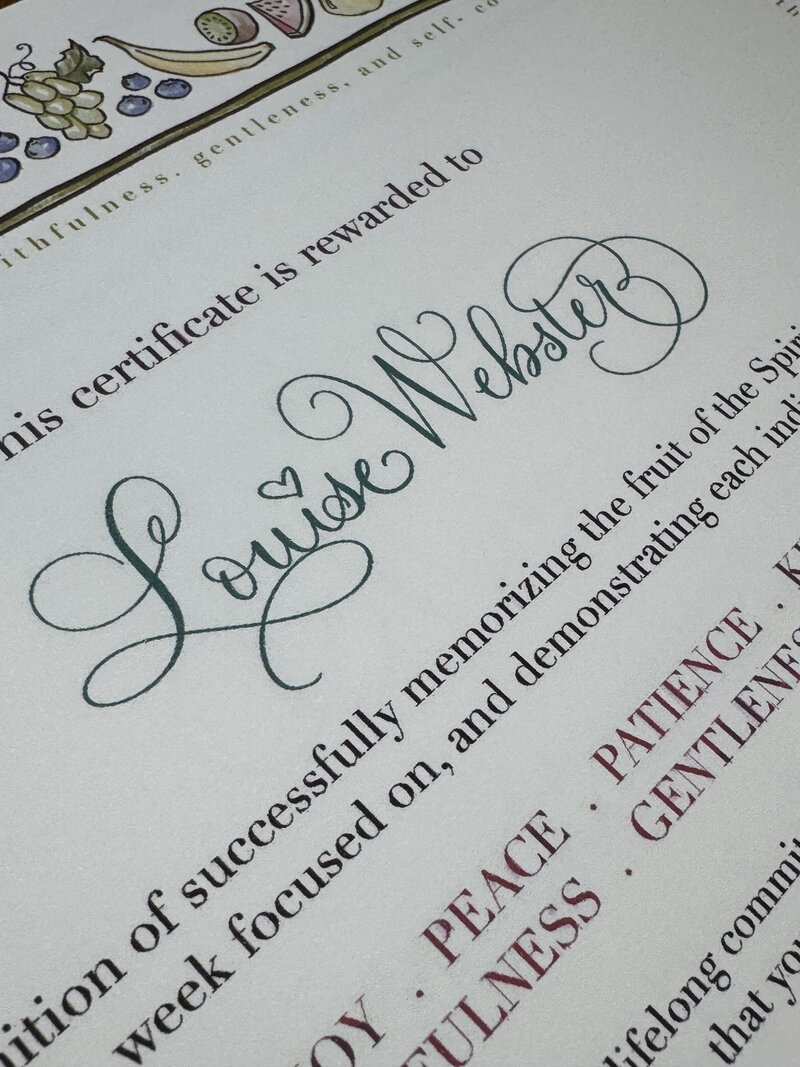 ithfulness, gentleness, and self- co
his certificate is rewarded to
Louise Webster
nition of successfully memorizing the fruit of the Spiri
week focused on, and demonstrating each indi
JOY · PEACE · PATIENCE · K
FULNESS · GENTLENES
lifelong commit
that you